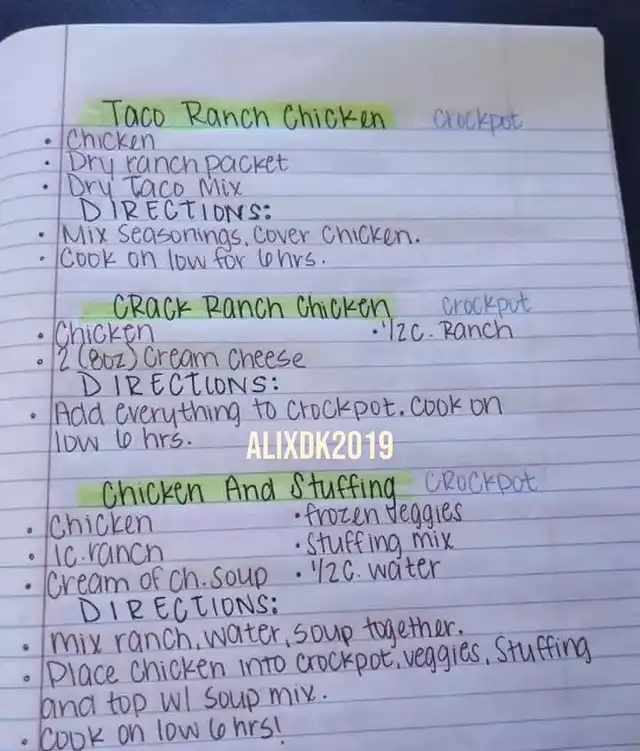 Taco Ranch Chicken Crockpot
• Chicken
• Dry ranch packet
• Dry Taco Mix
DIRECTIONS:
• Mix seasonings, cover chicken.
• Cook on low for 6 hrs.
CRack Ranch Chicken Crockput
• Chicken • 1/2 c. Ranch
• 2 (8oz) Cream Cheese
DIRECTIONS:
• Add everything to crockpot. Cook on
low 6 hrs.
ALIXDK2019
Chicken And Stuffing CROCKpot
• Chicken • frozen veggies
• 1c. ranch • Stuffing mix
• Cream of Ch. Soup • 1/2 c. water
DIRECTIONS:
• mix ranch, water, soup together.
• Place chicken into crockpot, veggies, Stuffing
and top w/ soup mix.
• Cook on low 6 hrs!